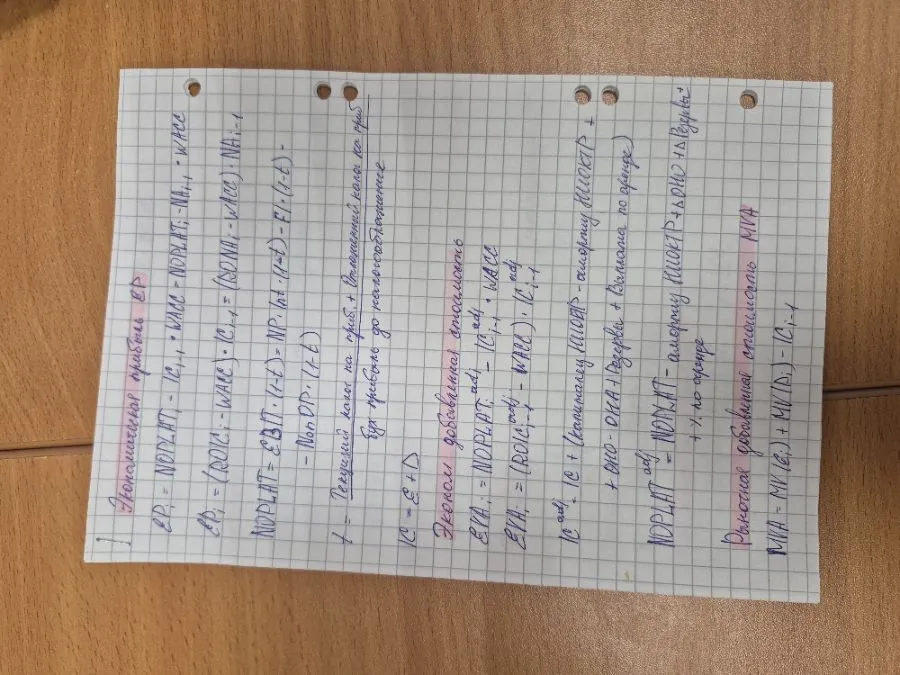 Экономическая прибыль EP
EPi = NOPLATi - ICi-1 • WACC = NOPLATi - NAi-1 • WACC
EPi = (ROICi - WACC) • ICi-1 = (RONAi - WACC) • NAi-1
NOPLAT = EBIT • (1-t) = NP + Int • (1-t) - FI • (1-t) -
- NonOP • (1-t)
t = Текущий налог на приб. + Отложенный налог на приб
бух прибыль до налогообложения
IC = E + D
Эконом добавленная стоимость
EVAi = NOPLATi adj - ICi-1 adj • WACC
EVAi = (ROICi-1 adj - WACC) • ICi-1 adj
IC adj = IC + (капитализ НИОКР - амортиз НИОКР +
+ ОНО - ОНА + Резервы + Выплата по аренде)
NOPLAT adj = NOPLAT - амортиз НИОКР + ΔОНО + ΔРезервы +
+ % по аренде
Рыночная добавленная стоимость MVA
MVA = MV(Ei) + MV(Di) - ICi-1